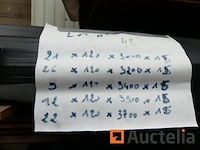 LOT N°
21 x 120 x 3000 x 18
26 x 120 x 3200 x 18
9 x 120 x 3400 x 18
12 x 120 x 3500 x 18
22 x 120 x 3700 x 18
Auctelia